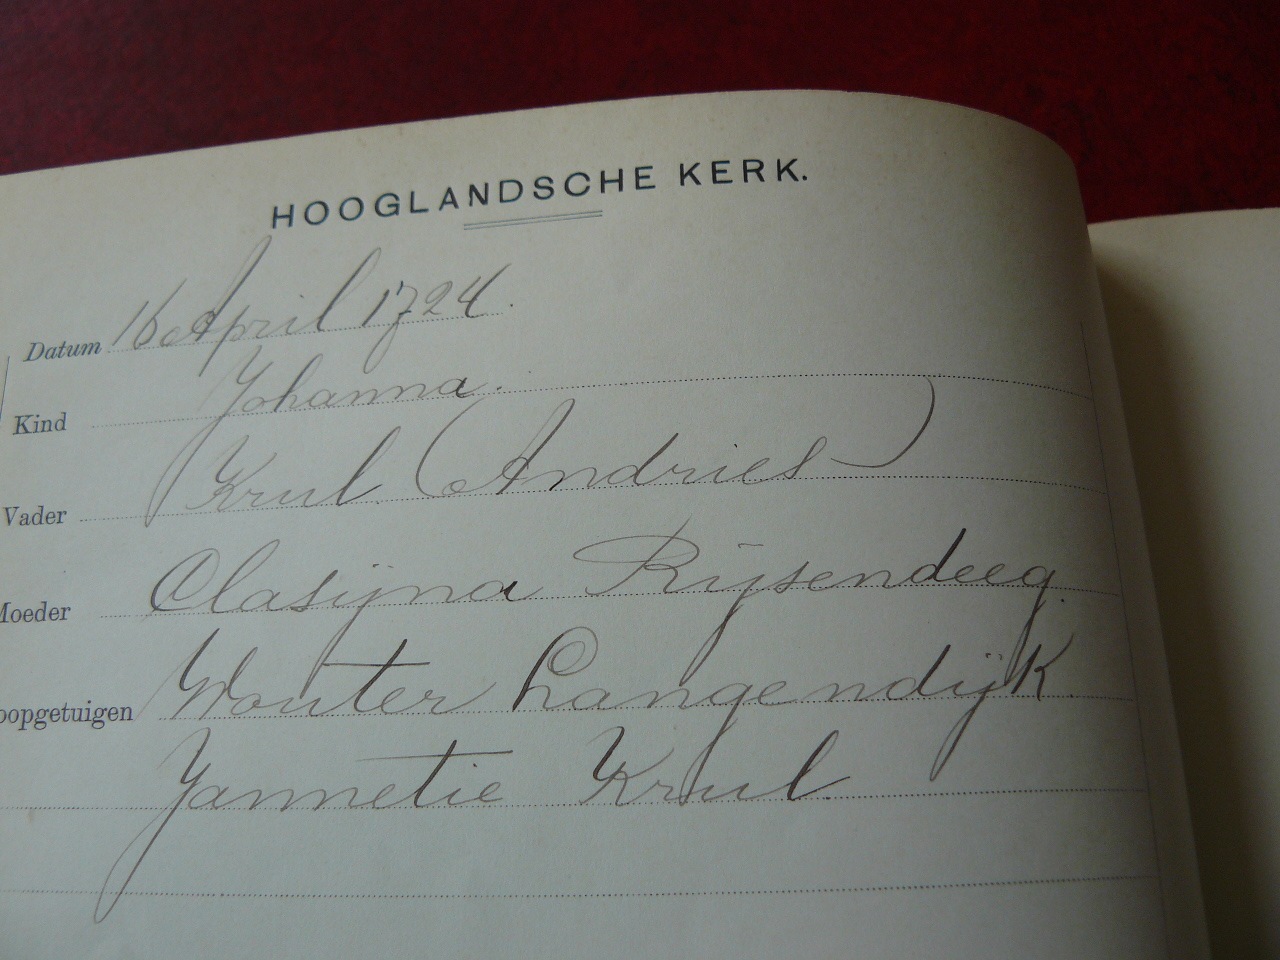 HOOGLANDSCHE KERK.
Datum 16 April 1724.
Kind Johanna.
Vader Krul (Andries)
Moeder Clasijna Rijsendeeg.
oopgetuigen Wouter Langendijk.
Jannetie Krul